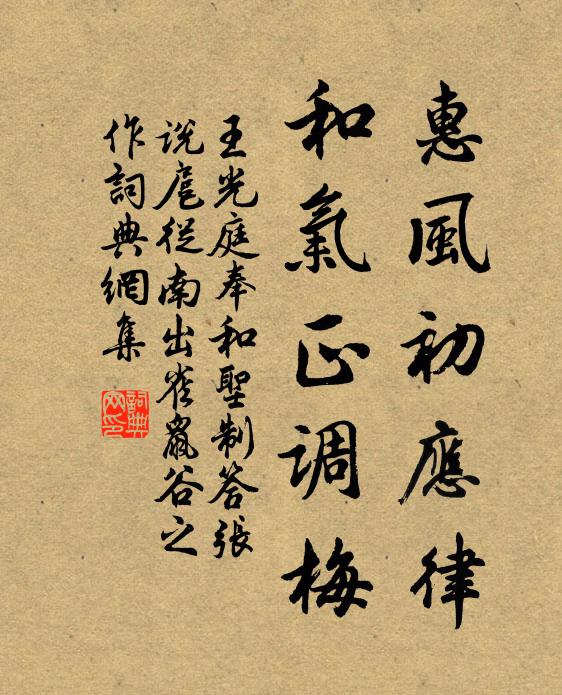 惠風初應律
和氣正调梅
王光庭奉和聖制答張
説扈從南出雀鼠谷之
作詞典網集
詞典网印